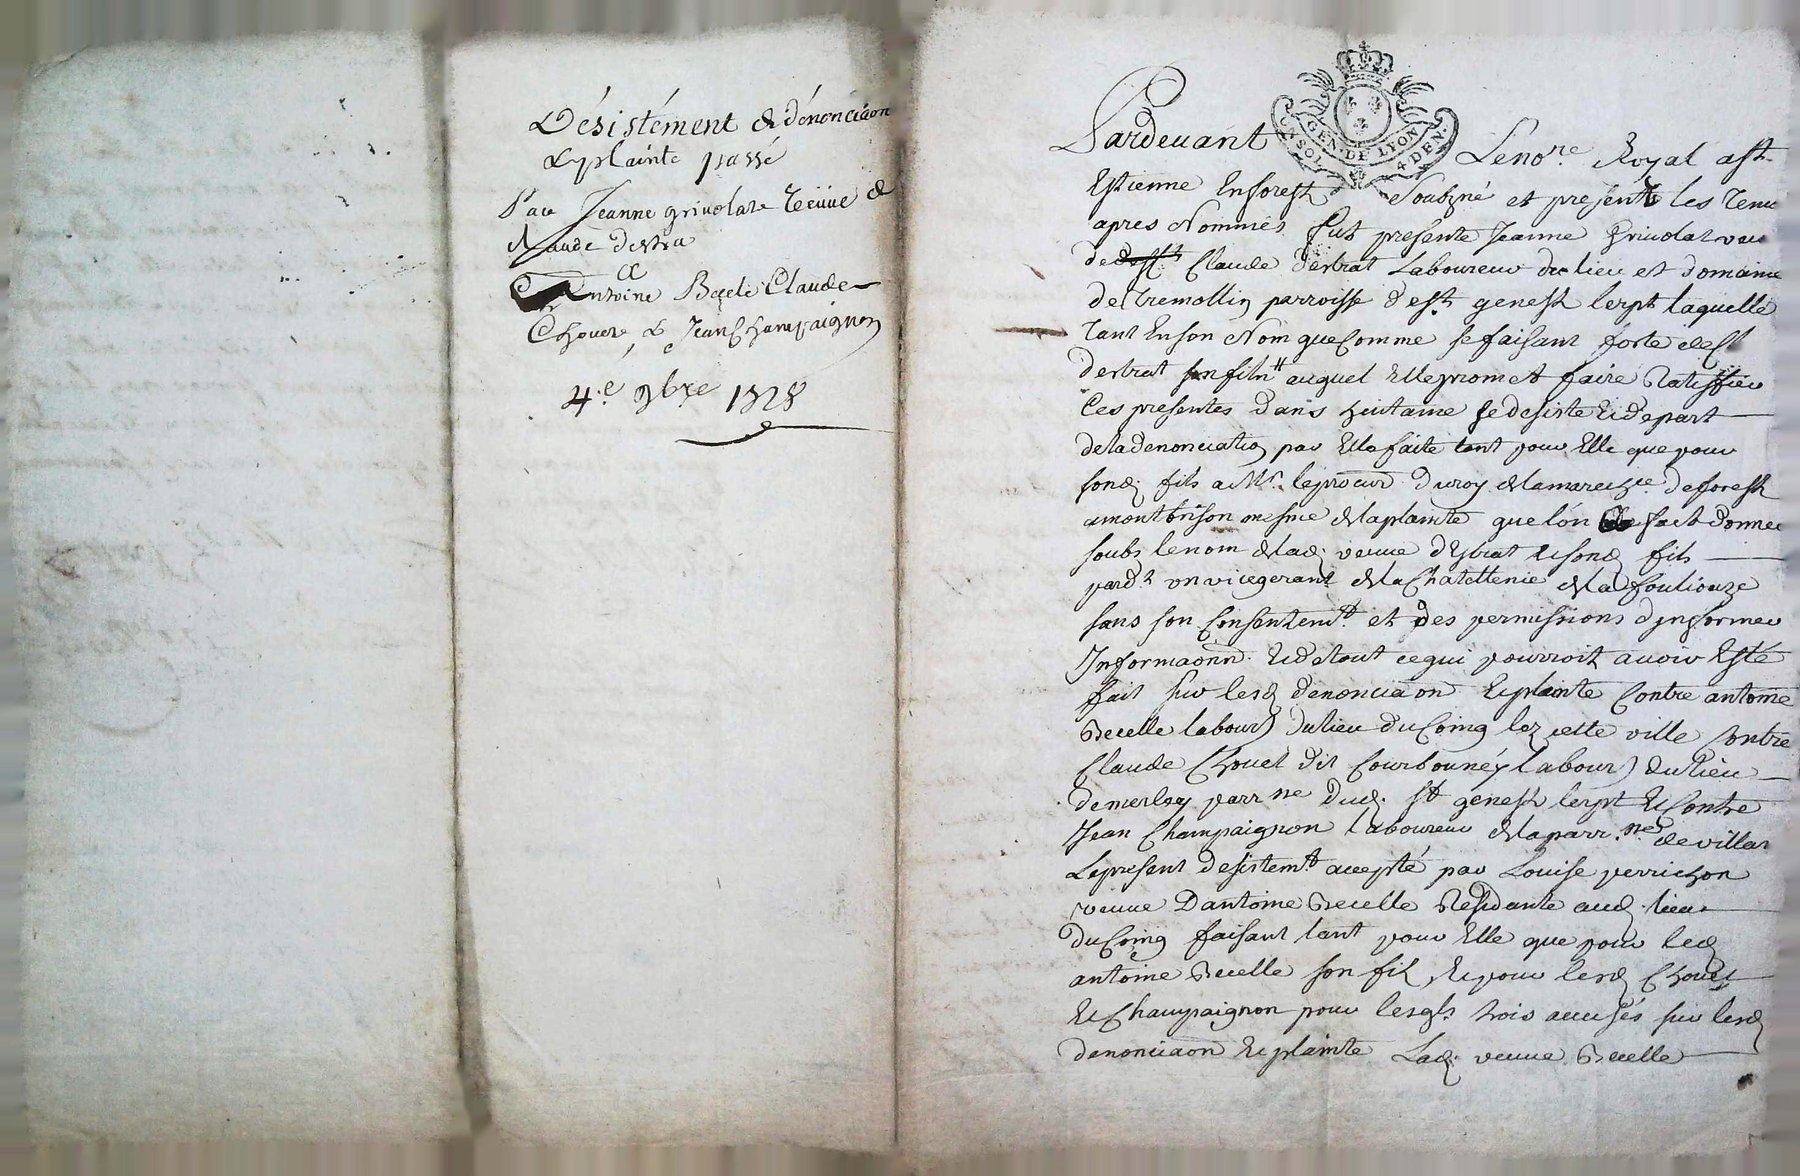 Désistément & dénonciãon
& plainte passé
Par Jeanne grivolat veüve de
Claude destra
Antoine Becele Claude
Chouet, & Jean Champaignon
4.e 9bre 1728
GEN. DE LYON
UN SOL 4 DEN.
Pardevant Le no.re Royal a st
Estienne En forest soubzné et presents les temn
apres Nommés fut presente Jeanne Grivolat veu
de Claude destrat Laboureur du lieu et domaine
de Tremollin parroisse de st. genest lerpt laquelle
tant En son Nom que Comme se faisant forte de Cl
destrat son fils auquel Elle promet faire Ratiffier
Ces presentes dans huitaine se desiste Et depart
de la denonciation par Elle faite tant pour Elle que pour
sond. fils a Mr. le procur. du roy de la marech.ée de forest
a montbrison mesme de la plainte que l'on fait donner
soubs le nom de lad. veuve destrat et sond. fils
pard.t un vicegerant de la Chatellenie de la fouliouze
sans son Consentem.t et des permissions d'ynformer
Informaõn. Et de tout ce qui pourroit avoir Esté
fait sur lesd. denonciãon Et plainte Contre antoine
Becelle labour) du lieu du Coing lez cette ville Contre
Claude Chouet dit Courbouney labour) du lieu
de merley parr.ne dud. St genest lerpt Et Contre
Jean Champaignon laboureur de la parr.ne de villar
Le present desistem.t accepté par Louise perrichon
veuve d'antoine Becelle Residante aud. lieu
du Coing faisant tant pour Elle que pour led.
antoine Becelle son fils Et pour lesd. Chouet
Et Champaignon pour lesqls. trois accusés sur lesd.
denonciãon Et plainte Lad. veuve Becelle